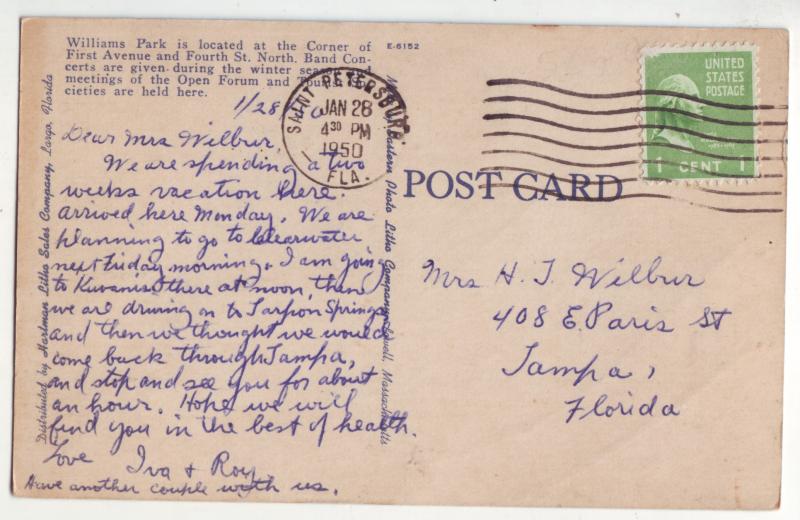 Williams Park is located at the Corner of
First Avenue and Fourth St. North. Band Con-
certs are given during the winter season and
meetings of the Open Forum and Tourist So-
cieties are held here.
E-6152
Distributed by Hartman Litho Sales Company, Largo, Florida
Eastern Photo Litho Company, Lowell, Massachusetts
SAINT PETERSBURG.
JAN 28
4 30 PM
1950
FLA.
UNITED
STATES
POSTAGE
1 CENT 1
POST CARD
1/28
Dear Mrs Wilbur,
We are spending a two
weeks vacation here.
arrived here Monday. We are
planning to go to Clearwater
next Friday morning. I am going
to Kiwanis there at noon, then
we are driving on to Tarpon Springs
and then we thought we would
come back through Tampa,
and stop and see you for about
an hour. Hope we will
find you in the best of health.
Love
Iva + Roy
Have another couple with us.
Mrs H. J. Wilbur
408 E. Paris St
Tampa,
Florida